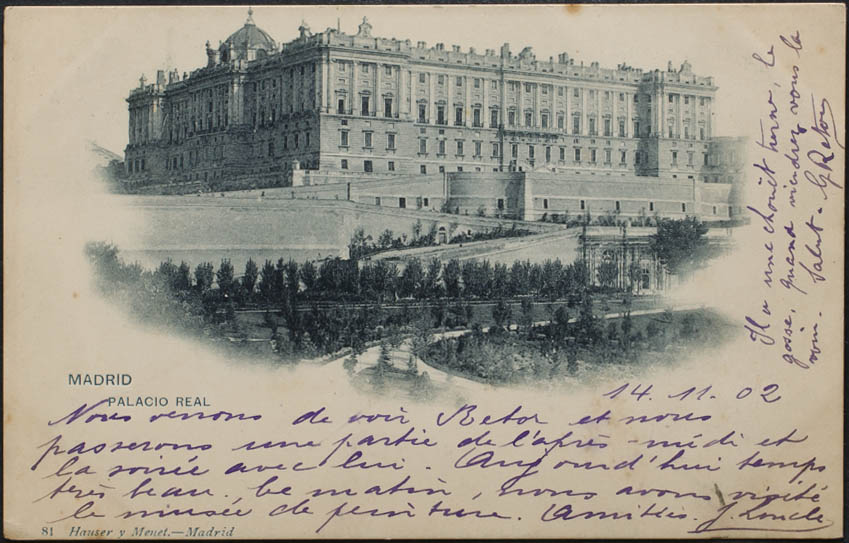 MADRID
PALACIO REAL
14. 11. 02
Nous venons de voir Retor et nous
passerons une partie de l'après-midi et
la soirée avec lui. Aujourd'hui temps
très beau. Ce matin, nous avons visité
le musée de peinture. Amitiés. J.
81 Hauser y Menet.—Madrid
Il a une chouette, le
gosse, quand viendrez vous la
voir. Salut. G Retor